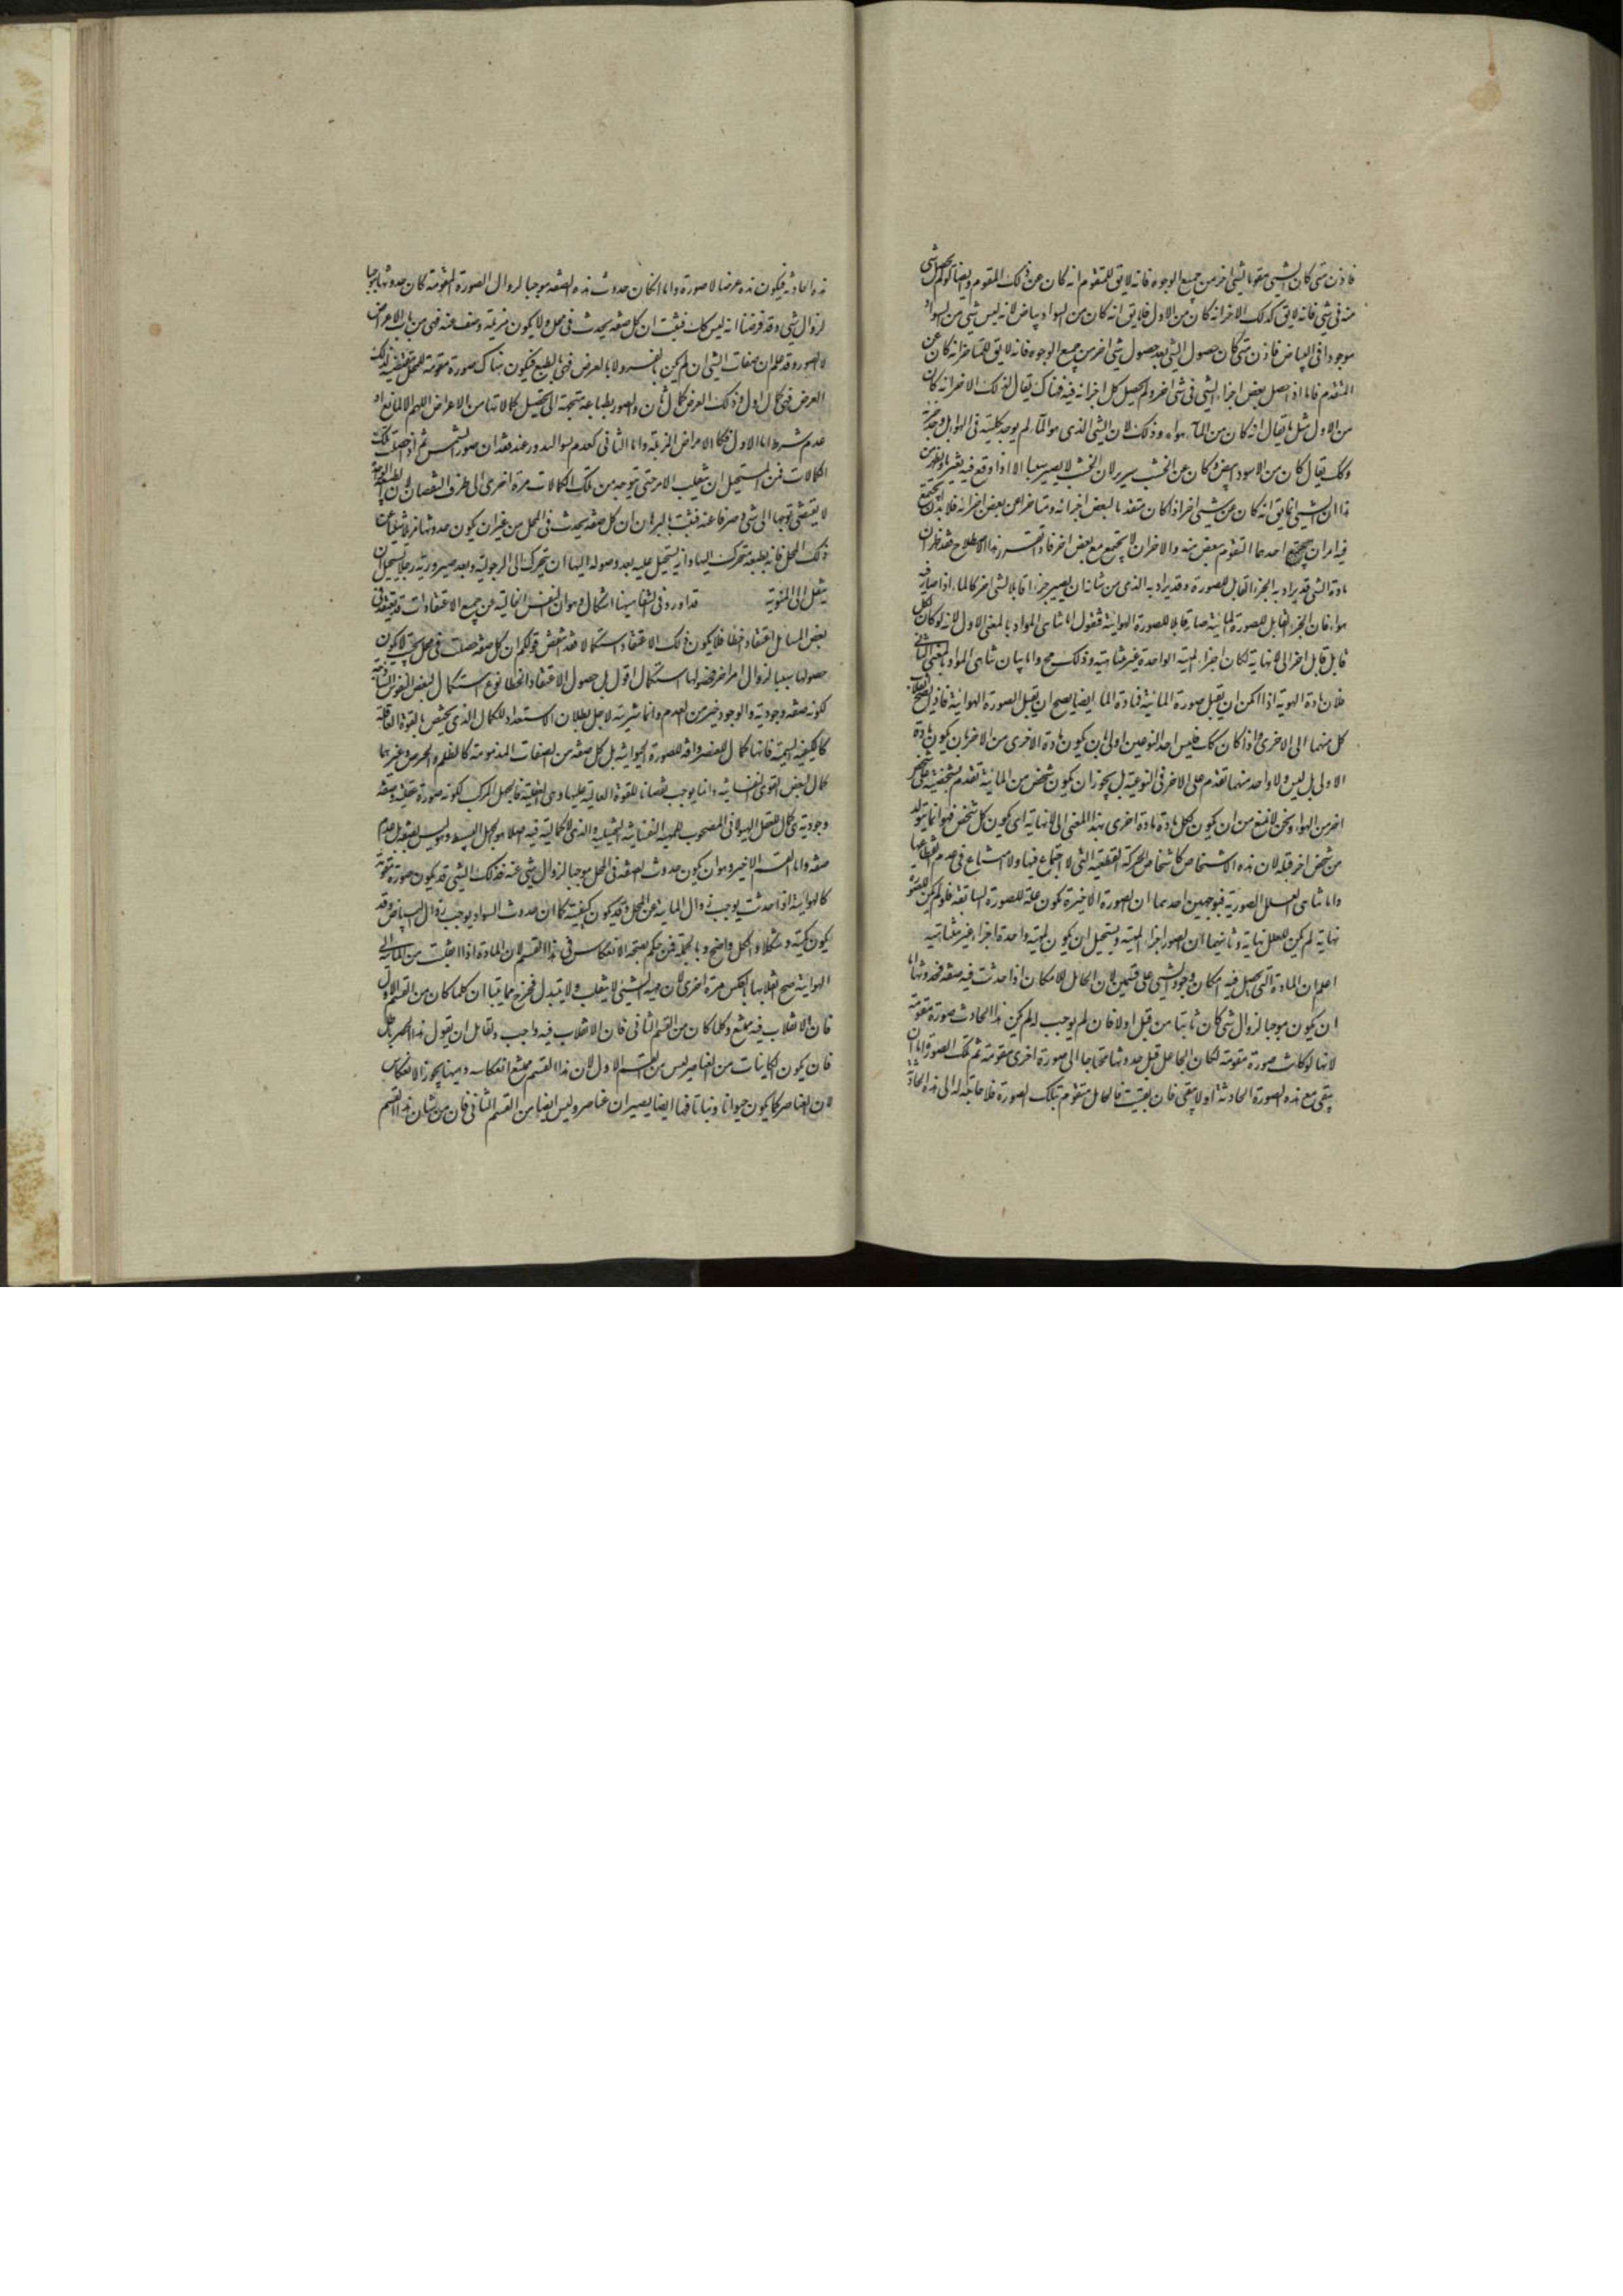 فاذن متى كان الشيء مقوما لشيء اخر من جميع الوجوه فانه لا يق للمتقوم انه كان عن ذلك المقوم وايضا لو لم يحصل شيء
منه في شيء فانه لا يق كذلك الاخر انه كان من الاول فلا يق انه كان من السواد بياض لانه ليس شيء من السواد
موجودا في البياض فاذن متى كان حصول الشيء بعد حصول شيء اخر من جميع الوجوه فانه لا يق للمتاخر انه كان عن
المتقدم فاما اذا حصل بعض اجزاء الشيء في شيء اخر ولم يحصل كل اجزائه فيه فهناك يقال لذلك الاخر انه كان
من الاول مثل ما يقال انه كان من الماء هواء وذلك لان الشيء الذي هو الماء لم يوجد بكليته في الهواء بل وجد جزئه
وكك يقال كان من الاسود ابيض وكان عن الخشب سرير لان الخشب لا يصير سريرا الا اذا وقع فيه تغير ما
هذا ان الشيء انما يق انه كان من شيء اخر اذا كان متقدما لبعض اجزائه ومتاخرا عن بعض اجزائه فلا بد ان يجتمع
فيه امران احدهما التقوم ببعض منه والاخر ان لا يجتمع مع بعض اخر فاذا تقرر هذا الاصطلاح فقد ظهر ان
مادة الشيء قد يراد به الجزء القابل للصورة وقد يراد به الذي من شانه ان يصير جزءا قابلا لشيء اخر كالماء اذا صار
هواء فان الجزء القابل للصورة المائية صار قابلا للصورة الهوائية فنقول اما تناهي المواد بالمعنى الاول لانه لو كان لكل
قابل قابل اخر الى لا نهاية لكان اجزاء المهية الواحدة غير متناهية وذلك مح واما بيان تناهي المواد بالمعنى الثاني
فلان مادة الهوية اذا امكن ان يقبل صورة المائية فمادة الماء ايضا يصح ان يقبل الصورة الهوائية فاذن يصح انقلاب
كل منهما الى الاخرى واذا كان كك فليس احد النوعين اولى بان يكون مادة الاخرى من الاخر بان يكون مادة
الاولى بل ليس ولا واحد منهما تقدم على الاخر في النوعية بل يجوز ان يكون شخص من المائية تقدم بشخصيته على شخص
اخر من الهواء ونحن لا نمنع من ان يكون لكل مادة مادة اخرى بهذا المعنى الى لا نهاية اي يكون كل شخص فهو انما يتولد
من شخص اخر قبله لان هذه الاشخاص كاشخاص الحركة القطعية التي لا اجتماع فيها ولا امتناع في عدم انقطاعها
واما تناهي العلل الصورية فبوجهين احدهما ان الصورة الاخيرة تكون علة للصورة السابقة فلو لم يكن للصور
نهاية لم يكن للعلل نهاية وثانيهما ان الصور اجزاء المهية ويستحيل ان يكون لمهية واحدة اجزاء غير متناهية
اعلم ان المادة التي يحصل فيه امكان وجود الشيء على قسمين لان الحامل للامكان اذا حدثت فيه صفة فحدوثها اما
ان يكون موجبا لزوال شيء كان ثابتا من قبل او لا فان لم يوجب له لم يكن هذا الحادث صورة مقومة
لانها لو كانت صورة مقومة لكان الحامل قبل حدوثها محتاجا الى صورة اخرى مقومة ثم تلك الصورة اما ان
يبقى مع هذه الصورة الحادثة او لا يبقى فان بقيت فالحامل متقوم بتلك الصورة فلا حاجة له الى هذه الحادثة
هذه الحادثة فيكون هذه عرضا لا صورة واما ان كان حدوث هذه الصفة موجبا لزوال الصورة المقومة كان حدوثها موجبا
لزوال شيء وقد فرضنا انه ليس كك فثبت ان كل صفة يحدث في محل ولا يكون مزيلة وصف عنه فهي من باب الاعراض
لا الصور وقد علم ان صفات الشيء ان لم يكن بالقسر ولا بالعرض فهي بالطبع فيكون هناك صورة مقومة للمحل مقتضية لذلك
العرض فهي كمال اول وذلك العرض كمال ثان والصور بطباعها متجهة الى تحصيل كمالاتها من الاعراض اللهم الا لمانع او
عدم شرط اما الاول فكالامراض المزيلة واما الثاني كعدم نمو البذور عند فقدان ضوء الشمس ثم اذا حصلت تلك
الكمالات فمن المستحيل ان ينقلب الامر حتى يتوجه من تلك الكمالات مرة اخرى الى طرف النقصان لان الطبيعة الواحدة
لا يقتضي توجها الى شيء وصرفا عنه فثبت بالبرهان ان كل صفة يحدث في المحل من غير ان يكون حدوثها مزيلا لشيء عن
ذلك المحل فانه بطبعه متحرك اليها وانه يستحيل عليه بعد وصوله اليها ان يتحرك الى الرجولية وبعد صيرورته رجلا يستحيل ان
ينتقل الى المنوية قد اورد في الشفا هيهنا اشكال وهو ان النفس الخالية عن جميع الاعتقادات قد يعتقد في
بعض المسايل اعتقادا خطا فلا يكون ذلك الاعتقاد استكمالا فقد انتقض قولكم ان كل صفة حصلت في محل يجب لا يكون
حصولها سببا لزوال امر اخر فحصولها استكمال اقول بل حصول الاعتقاد الخطا نوع استكمال لبعض النفوس الناقصة
لكونه صفة وجودية والوجود خير من العدم وانما شريته لاجل بطلان الاستعداد للكمال الذي يختص بالقوة العاقلة
كالكيفية السمية فانها كمال للعنصر وافة للصورة الحيوانية بل كل صفة من الصفات المذمومة كالظلم والحرص وغيرهما
كمال لبعض القوى النفسانية وانما يوجب نقصانا للقوة العالية عليها وهي العقلية فالجهل المركب لكونه صورة عقلية وصفة
وجودية هي كمال للعقل الهيولاني المصحوب للهيئة النفسانية والذي لا كمالية فيه اصلا هو الجهل البسيط وهو ليس
صفة واما القسم الاخير وهو ان يكون حدوث الصفة في المحل موجبا لزوال شيء عنه فذلك الشيء قد يكون صورة مقومة
كالهوائية اذا حدثت يوجب زوال المائية عن المحل وقد يكون كيفية كما ان حدوث السواد يوجب زوال البياض وقد
يكون كمية وشكلا والكل واضح وبالجملة فمن حكم بصحة الانعكاس في هذا القسم لان المادة اذا انقلبت من المائية الى
الهوائية صح انقلابها بالعكس مرة اخرى لان مهية الشيء لا ينقلب ولا يتبدل فخرج مما بينا ان كلما كان من القسم الاول
فان الانقلاب فيه ممتنع وكلما كان من القسم الثاني فان الانقلاب فيه واجب ولقايل ان يقول هذا الحصر باطل
فان يكون الكاينات من العناصر ليس من القسم الاول لان هذا القسم ممتنع انعكاسه وهيهنا يجوز الانعكاس
لان العناصر كما يكون حيوانا ونباتا فهما ايضا يصيران عناصر وليس ايضا من القسم الثاني فان من شان هذا القسم